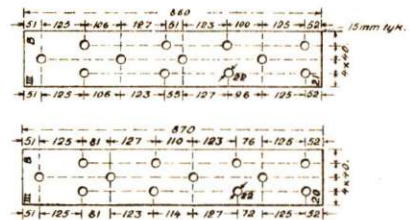 860
51 125 106 127 51 123 100 125 52
15mm tyk.
8
4x40.
22
III
21
51 125 106 123 55 127 96 125 52
870
51 125 81 127 110 123 76 125 52
8
4x40.
22
III
20
51 125 81 123 114 127 72 125 52